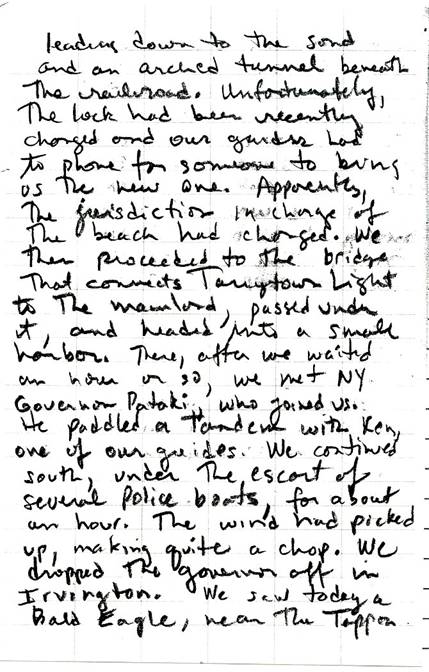 leading down to the sand
and an arched tunnel beneath
The railroad. Unfortunately,
The lock had been recently
changed and our guides had
to phone for someone to bring
us the new one. Apparently,
The jurisdiction in charge of
The beach had changed. We
then proceeded to the bridge
That connects Tarrytown Light
to The mainland, passed under
it, and headed into a small
harbor. There, after we waited
an hour or so, we met NY
Governor Pataki, who joined us.
He paddled a Tandem with Ken,
one of our guides. We continued
south, under The escort of
several Police boats, for about
an hour. The wind had picked
up, making quite a chop. We
dropped The governor off in
Irvington. We saw today a
Bald Eagle, near The Tappan